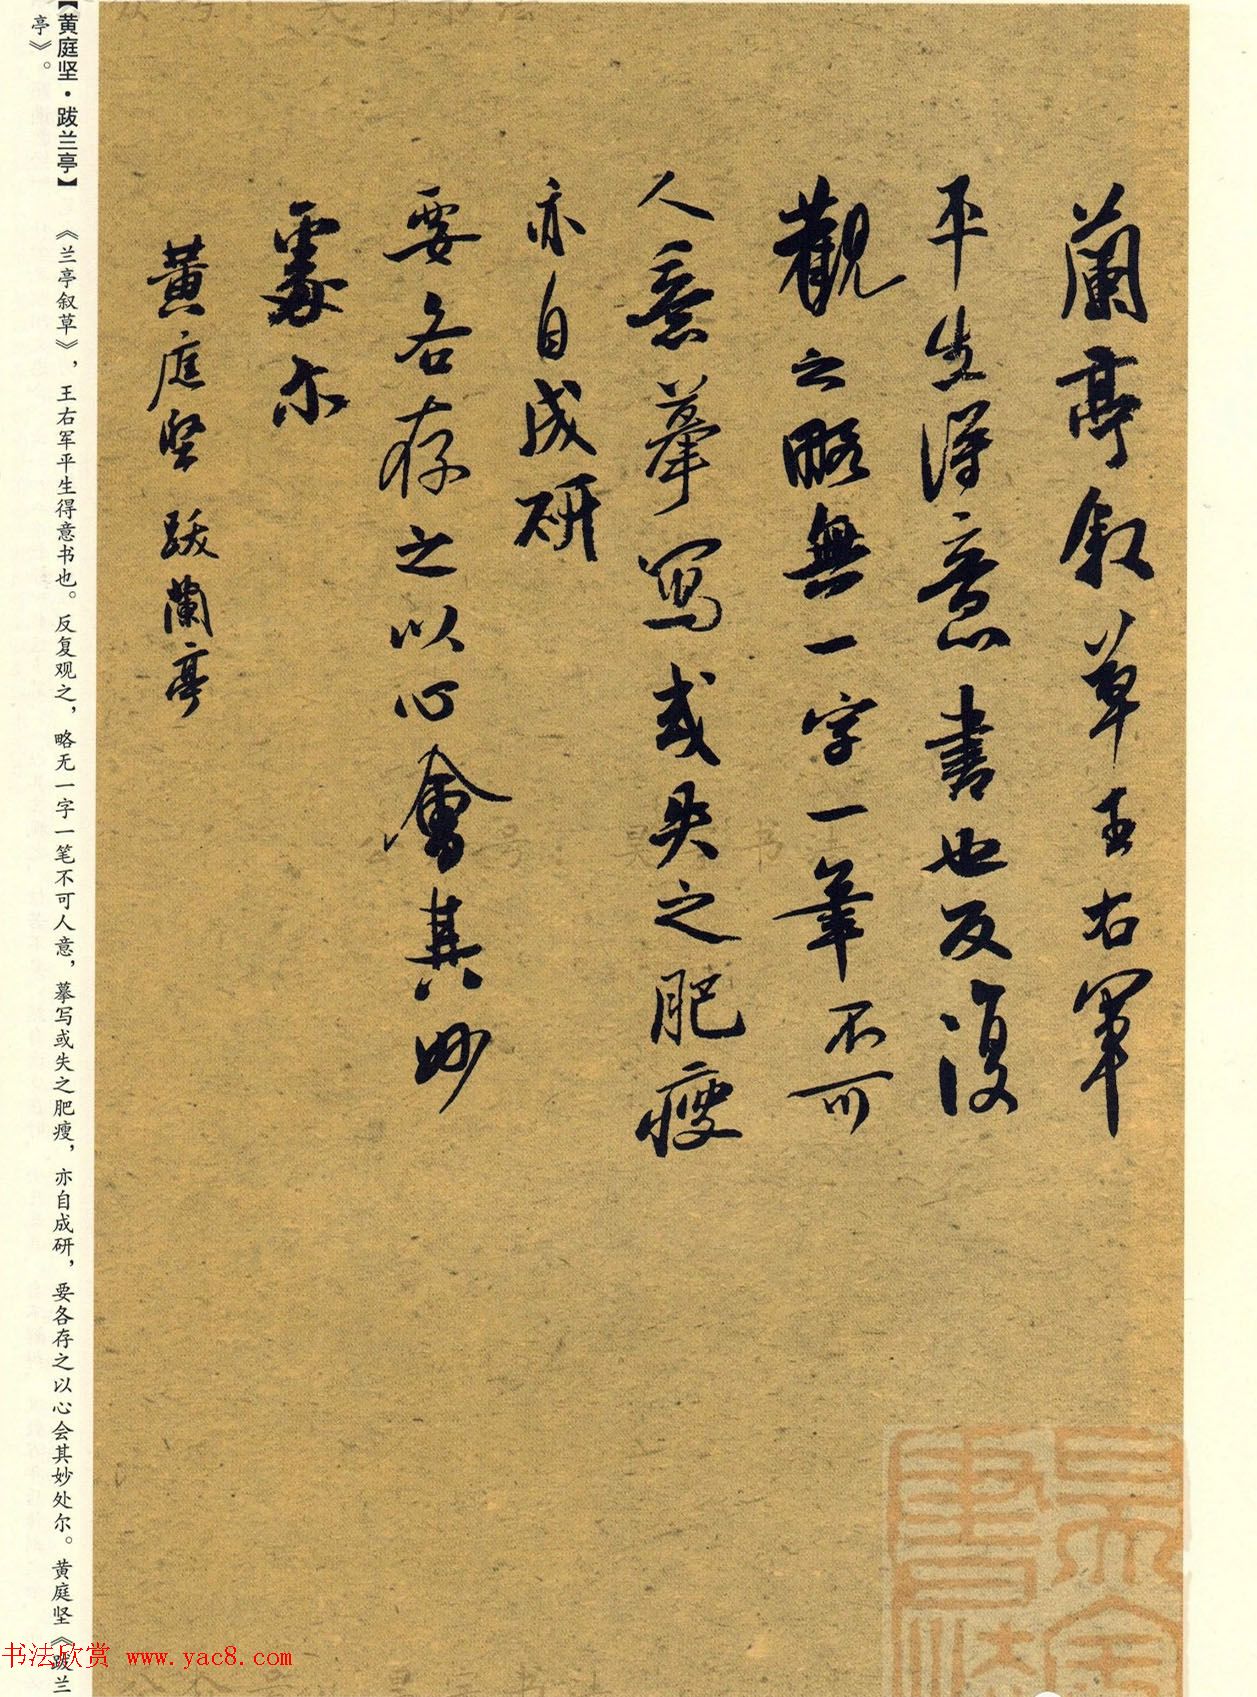 蘭亭叙草王右軍
平生得意書也反復
觀之略無一字一筆不可
人意摹寫或失之肥瘦
亦自成研
要各存之以心會其妙
處尔
黃庭坚跋蘭亭
【黄庭坚·跋兰亭】 《兰亭叙草》，王右军平生得意书也。反复观之，略无一字一笔不可人意，摹写或失之肥瘦，亦自成研，要各存之以心会其妙处尔。黄庭坚《跋兰
亭》。
书法欣赏 www.yac8.com